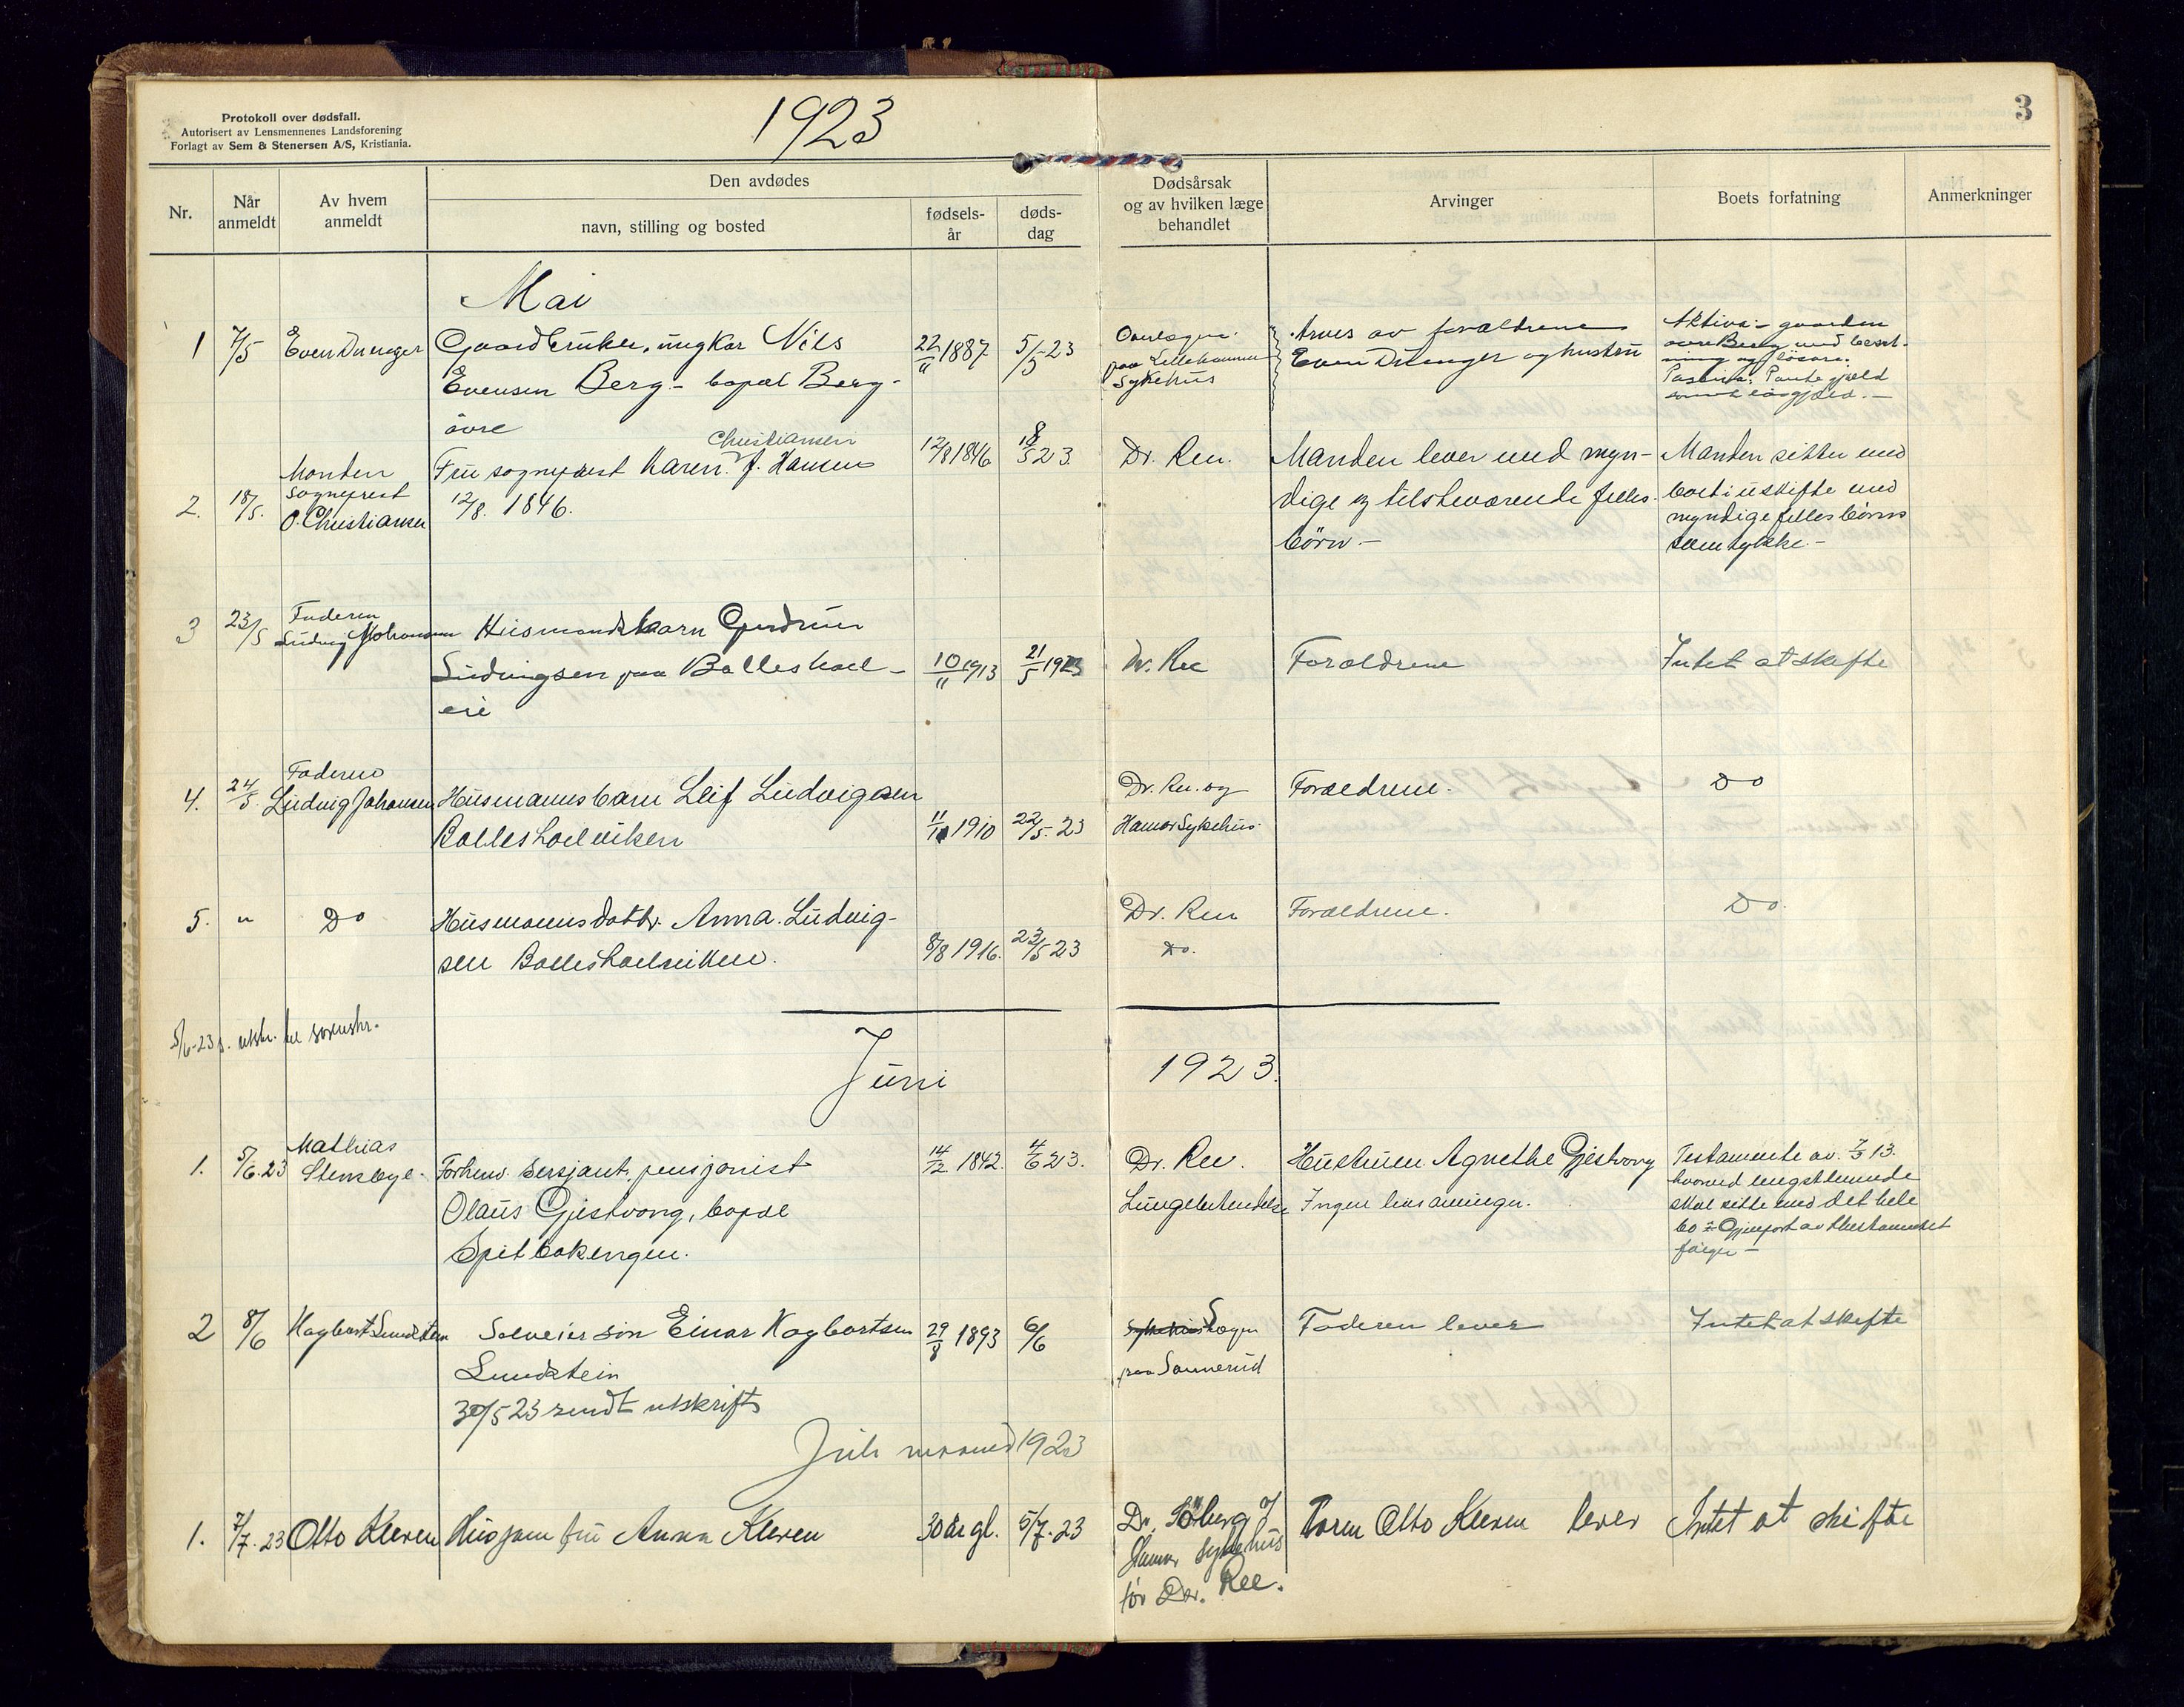 Protokoll over dødsfall.
Autorisert av Lensmennenes Landsforening
Forlagt av Sem & Stenersen A/S, Kristiania.
1923
3
Nr.
Når
anmeldt
Av hvem
anmeldt
Den avdødes
navn, stilling og bosted
fødsels-
år
døds-
dag
Dødsårsak
og av hvilken læge
behandlet
Arvinger
Boets forfatning
Anmerkninger
Mai
1 7/5 Even Dunger Gaardbruker, ungkar Nils 22/11 1887 5/5-23
Evensen Berg - bopæl Berg-
övre
Overlægen
paa Lillehammer
Sykehus
Arves av forældrene
Even Dunger og hustru
Aktiva:- gaarden
övre Berg med besæt-
ning og lösöre.
Passiva: Pantegjæld
samt lösgjæld.-
2. 18/5. Manden
sogneprest
O. Christiansen
Christiansen
Fru sogneprest Karen J. Hansen 12/8 1846 18/5 23.
12/8. 1846.
Dr. Ree.
Manden lever med myn-
dige og tilstedeværende felles-
börn -
Manden sitter med
boet i uskifte med
myndige felles börns
samtykke.-
3 23/5 Faderen
Ludvig Johansen Husmandsbarn Gudrun
Ludvigsen paa Balleshoel- 10/11 1913 21/5 1923
eie
Dr. Ree Forældrene Intet at skifte
4. 24/5. Faderen
Ludvig Johansen Husmannsbarn Leif Ludvigsen
Balleshoelviken 11/10 1910 22/5-23
Dr. Ree. og
Hamar Sykehus.
Forældrene. Do
5. " Do Husmannsdattr. Anna Ludvig-
sen Balleshoelviken. 8/8 1916. 23/5 23
Dr. Ree
Do.
Forældrene. Do.
5/6-23 s. utskr. til sorenskr.
Juni 1923.
1. 5/6.23 Mathias
Stensbye. Forhenv. Sersjant, pensjonist 14/12 1842. 4/6 23.
Olaus Gjestvang, bopæl
Spitbakengen.
Dr. Ree.
Lungebetendelse
Hustruen Agnethe Gjestvang
Ingen livsarvinger.
Testamente av 7/3 13.
hvorved lengstlevende
skal sitte med det hele
bo - Gjenpart av testamentet
følger -
2 8/6 Hagbart Lundstein Selveiersön Einar Hagbartsen 29/8 1893 6/6
Lundstein
30/5 23 sendt utskrift
Sykehuslægen
paa Sannerud
Faderen lever Intet at skifte
Juli maaned 1923
1. 7/7.23 Otto Kleven Husjomfru Anna Kleven 30 år gl. 5/7-23
Dr. Söberg
Hamar Sykehus
før Dr. Ree.
Faren Otto Kleven lever Intet at skifte